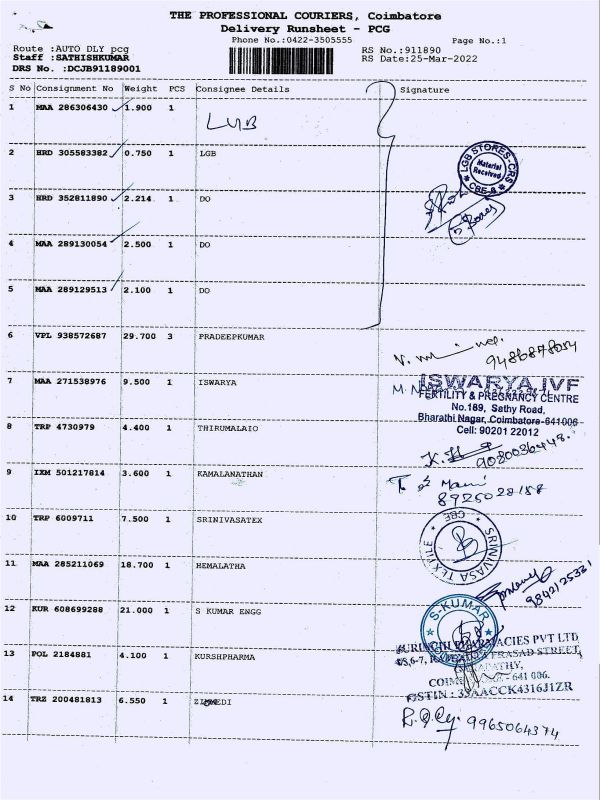 THE PROFESSIONAL COURIERS, Coimbatore
Delivery Runsheet - PCG
Phone No.:0422-3505555
Page No.:1
Route :AUTO DLY pcg
RS No.:911890
Staff :SATHISHKUMAR
RS Date:25-Mar-2022
DRS No. :DCJB91189001
S No Consignment No Weight PCS Consignee Details Signature
1 MAA 286306430 1.900 1 LGB
2 HRD 305583382 0.750 1 LGB
LGB STORES-CRS
Material Received
CBE-6
3 HRD 352811890 2.214 1 DO
4 MAA 289130054 2.500 1 DO
5 MAA 289129513 2.100 1 DO
6 VPL 938572687 29.700 3 PRADEEPKUMAR
9486878054
7 MAA 271538976 9.500 1 ISWARYA
ISWARYA IVF
FERTILITY & PREGNANCY CENTRE
No.189, Sathy Road,
Bharathi Nagar, Coimbatore-641006
Cell: 90201 22012
8 TRP 4730979 4.400 1 THIRUMALAIO
9080036448.
9 IXM 501217814 3.600 1 KAMALANATHAN
8925028188
10 TRP 6009711 7.500 1 SRINIVASATEX
SRINIVASA TEXTILE
CBE
11 MAA 285211069 18.700 1 HEMALATHA
12 KUR 608699288 21.000 1 S KUMAR ENGG
S-KUMAR
13 POL 2184881 4.100 1 KURSHPHARMA
PVT LTD
STREET,
641 006.
GSTIN : 33AACCK4316J1ZR
14 TRZ 200481813 6.550 1
9965064374